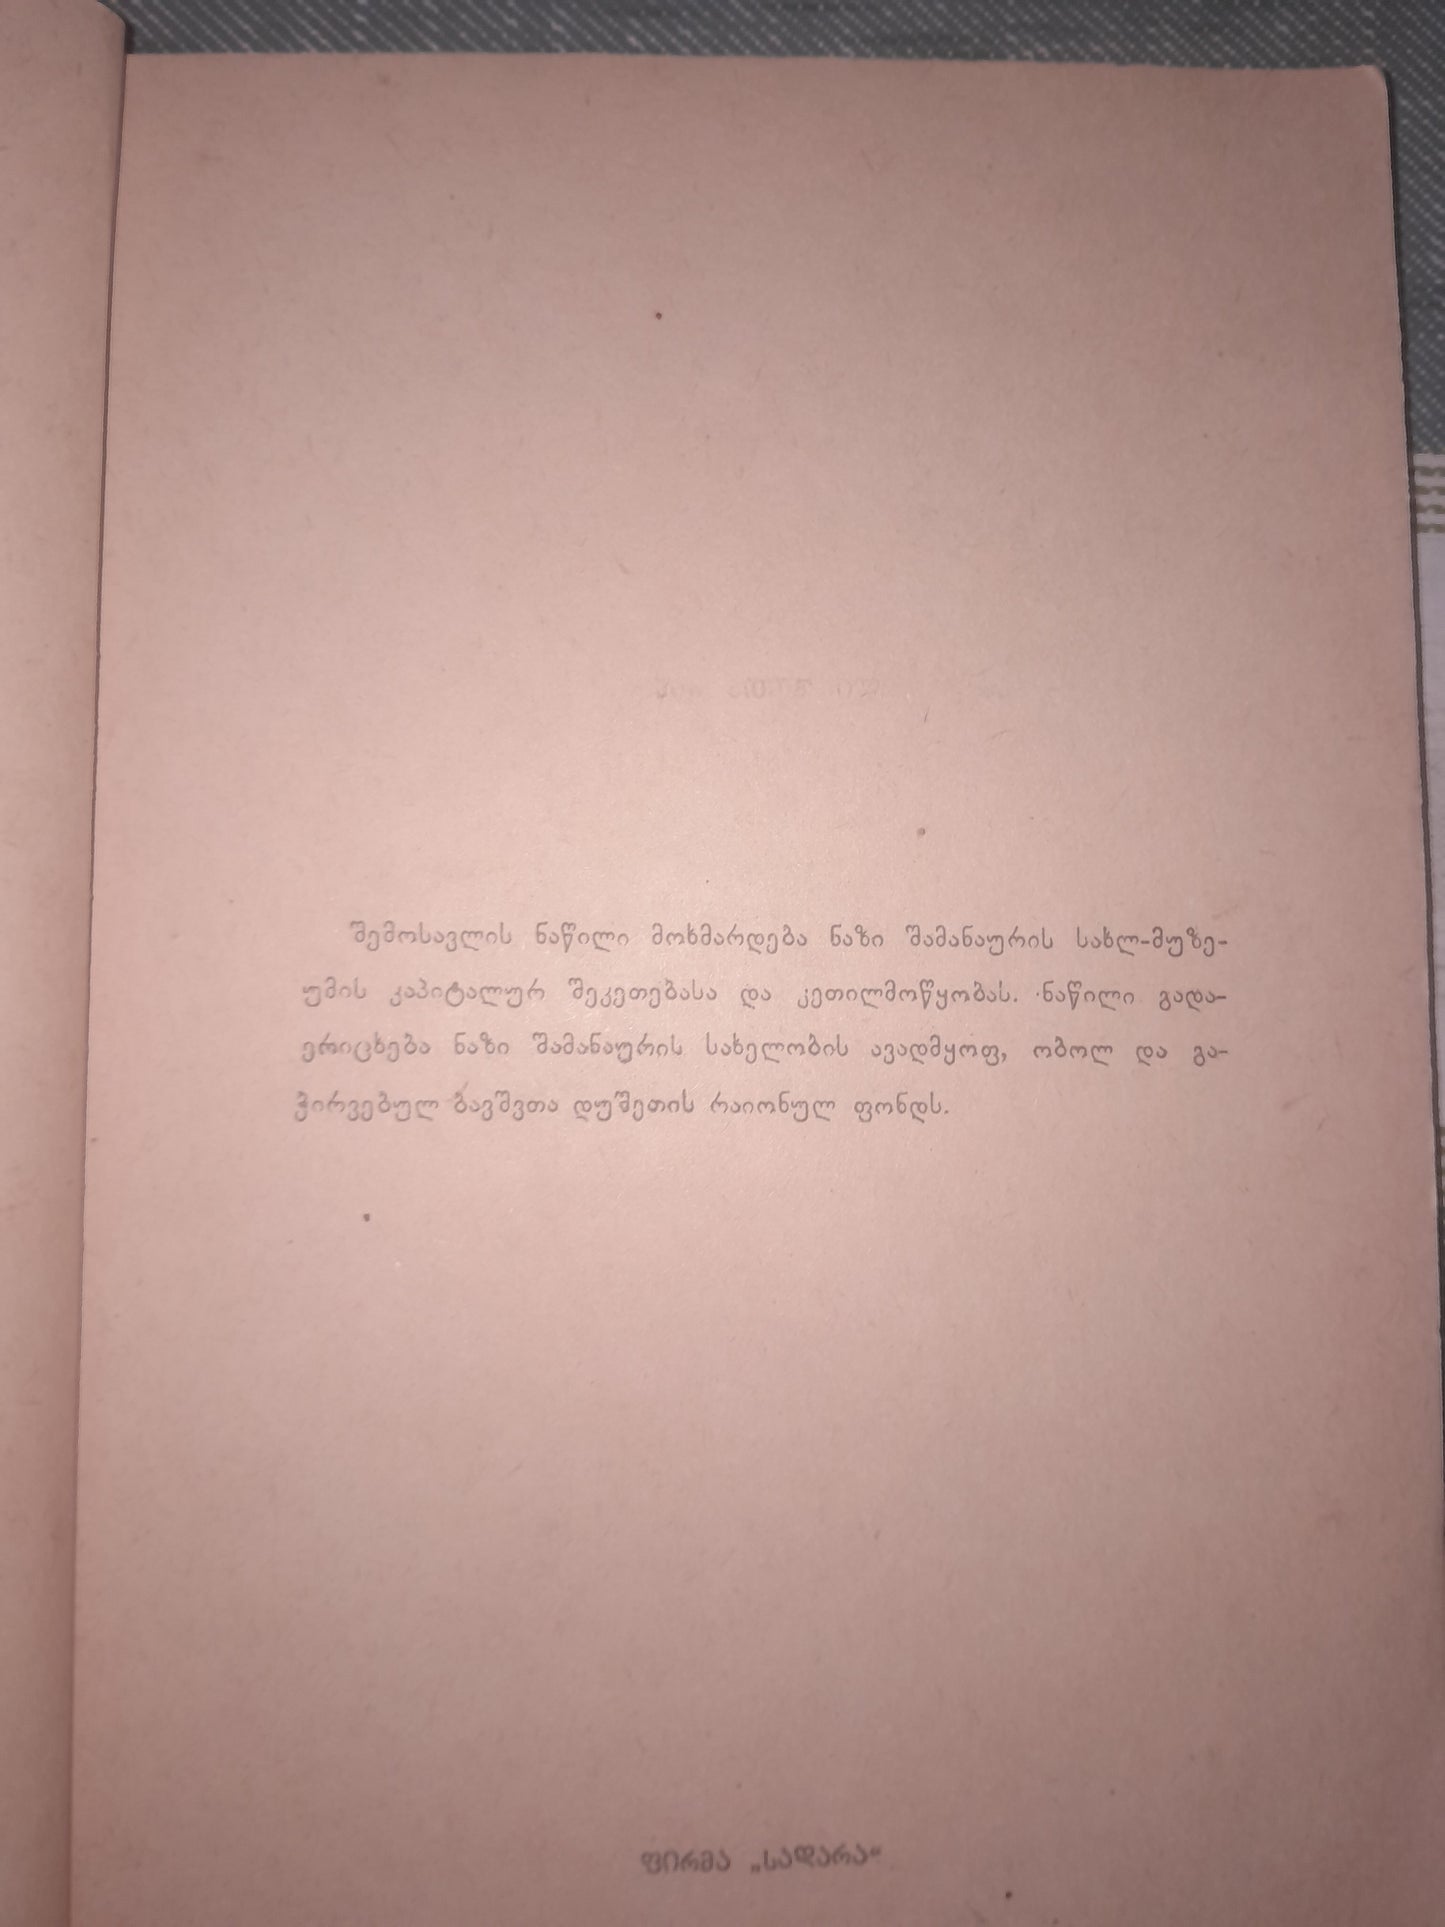 შემოსავლის ნაწილი მოხმარდება ნაზი შამანაურის სახლ-მუზე-
უმის კაპიტალურ შეკეთებასა და კეთილმოწყობას. ნაწილი გადა-
ერიცხება ნაზი შამანაურის სახელობის ავადმყოფ, ობოლ და გა-
ჭირვებულ ბავშვთა დუშეთის რაიონულ ფონდს.
ფირმა „სადარა“